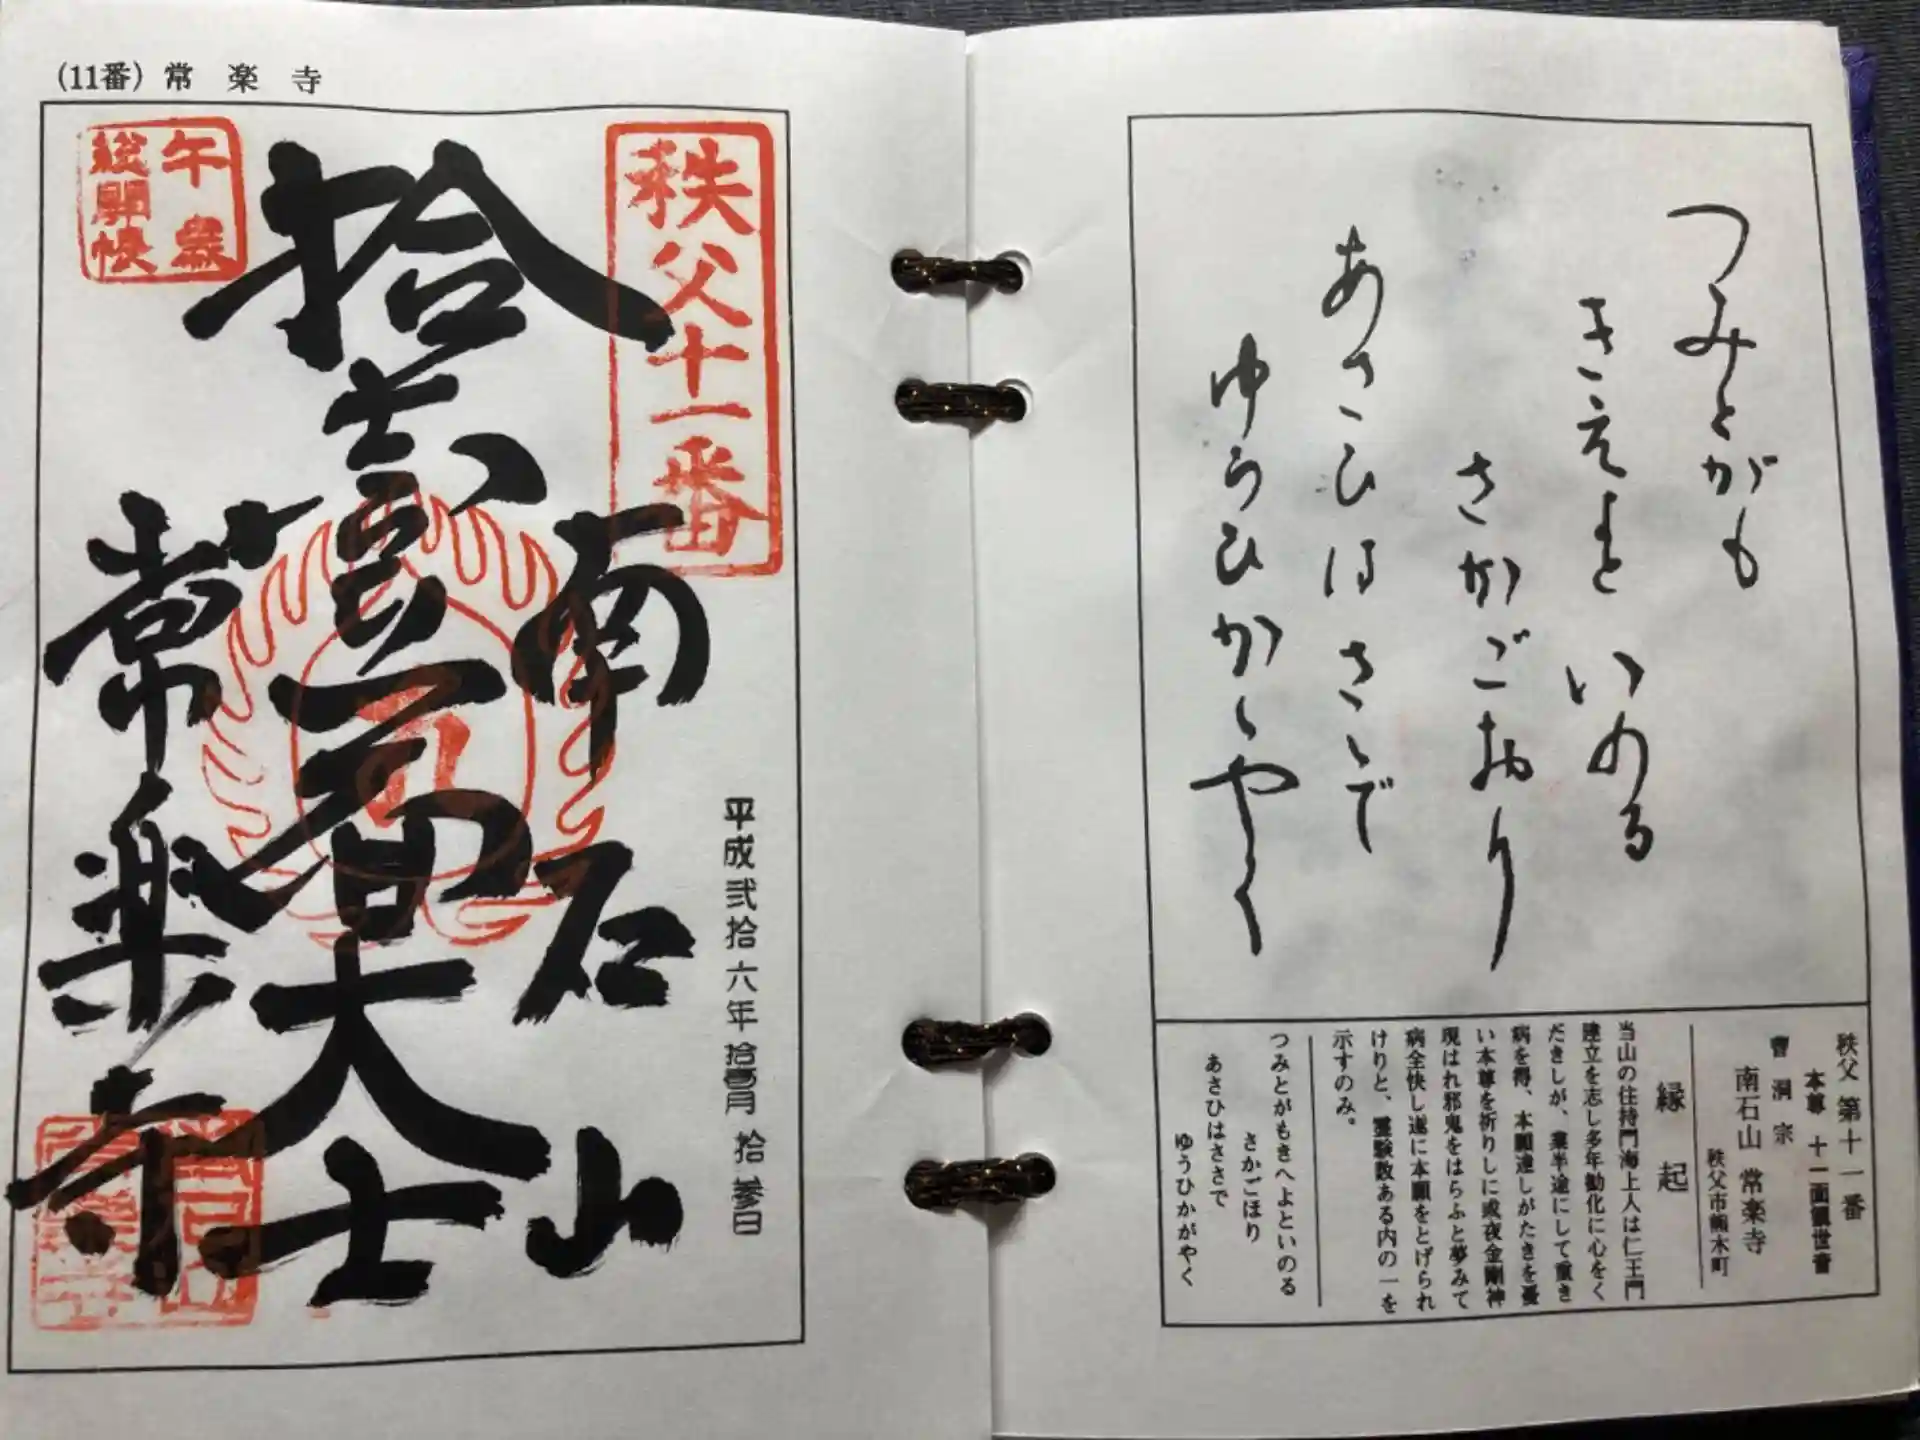 (11番) 常楽寺
午歳
総開帳
秩父十一番
拾壱番
大士
南石山
常楽寺
平成弐拾六年拾壱月拾参日
つみとがも
きえよと いのる
さかごおり
あさひはさゝで
ゆうひかゞやく
秩父 第十一番
本尊 十一面観世音
曹洞宗
南石山 常楽寺
秩父市熊木町
縁起
当山の住持門海上人は仁王門
建立を志し多年勧化に心をく
だきしが、業半途にして重き
病を得、本願達しがたきを憂
い本尊を祈りしに或夜金剛神
現はれ邪鬼をはらふと夢みて
病全快し遂に本願をとげられ
けりと、霊験数ある内の一を
示すのみ。
つみとがもきへよといのる
さかごほり
あさひはささで
ゆうひかがやく